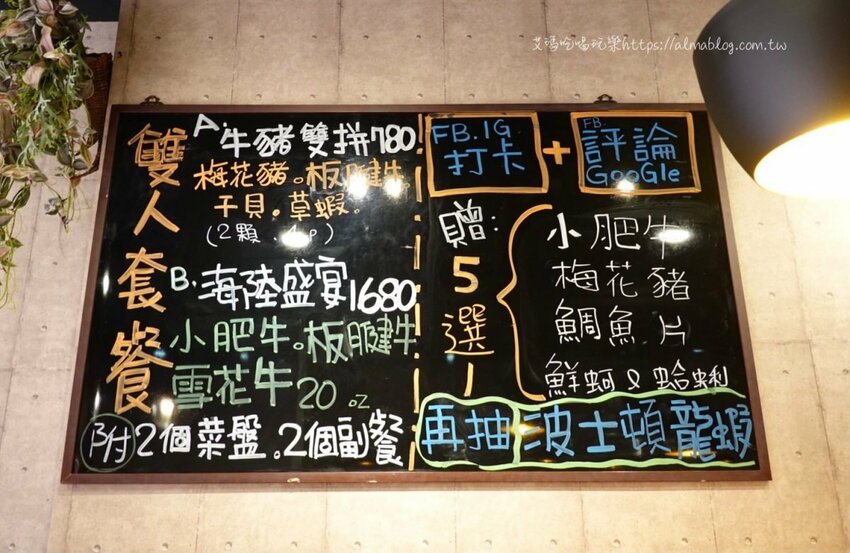 艾瑪吃喝玩樂https://almablog.com.tw
雙人套餐
A. 牛豬雙拼780
梅花豬。板腱牛。
干貝。草蝦。
(2顆、4p)
B. 海陸盛宴1680
小肥牛。板腱牛
雪花牛20oz
附 2個菜盤。2個副餐
FB.IG
打卡
+
FB.
評論
GooGle
贈:5選1
小肥牛
梅花豬
鯛魚片
鮮蚵&蛤蜊
再抽 波士頓龍蝦